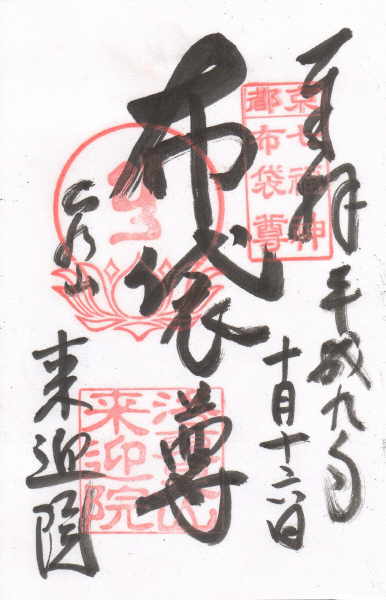 奉拝
平成九年
十月十六日
京都
七福神
布袋尊
布袋尊
山
来迎院
来迎院